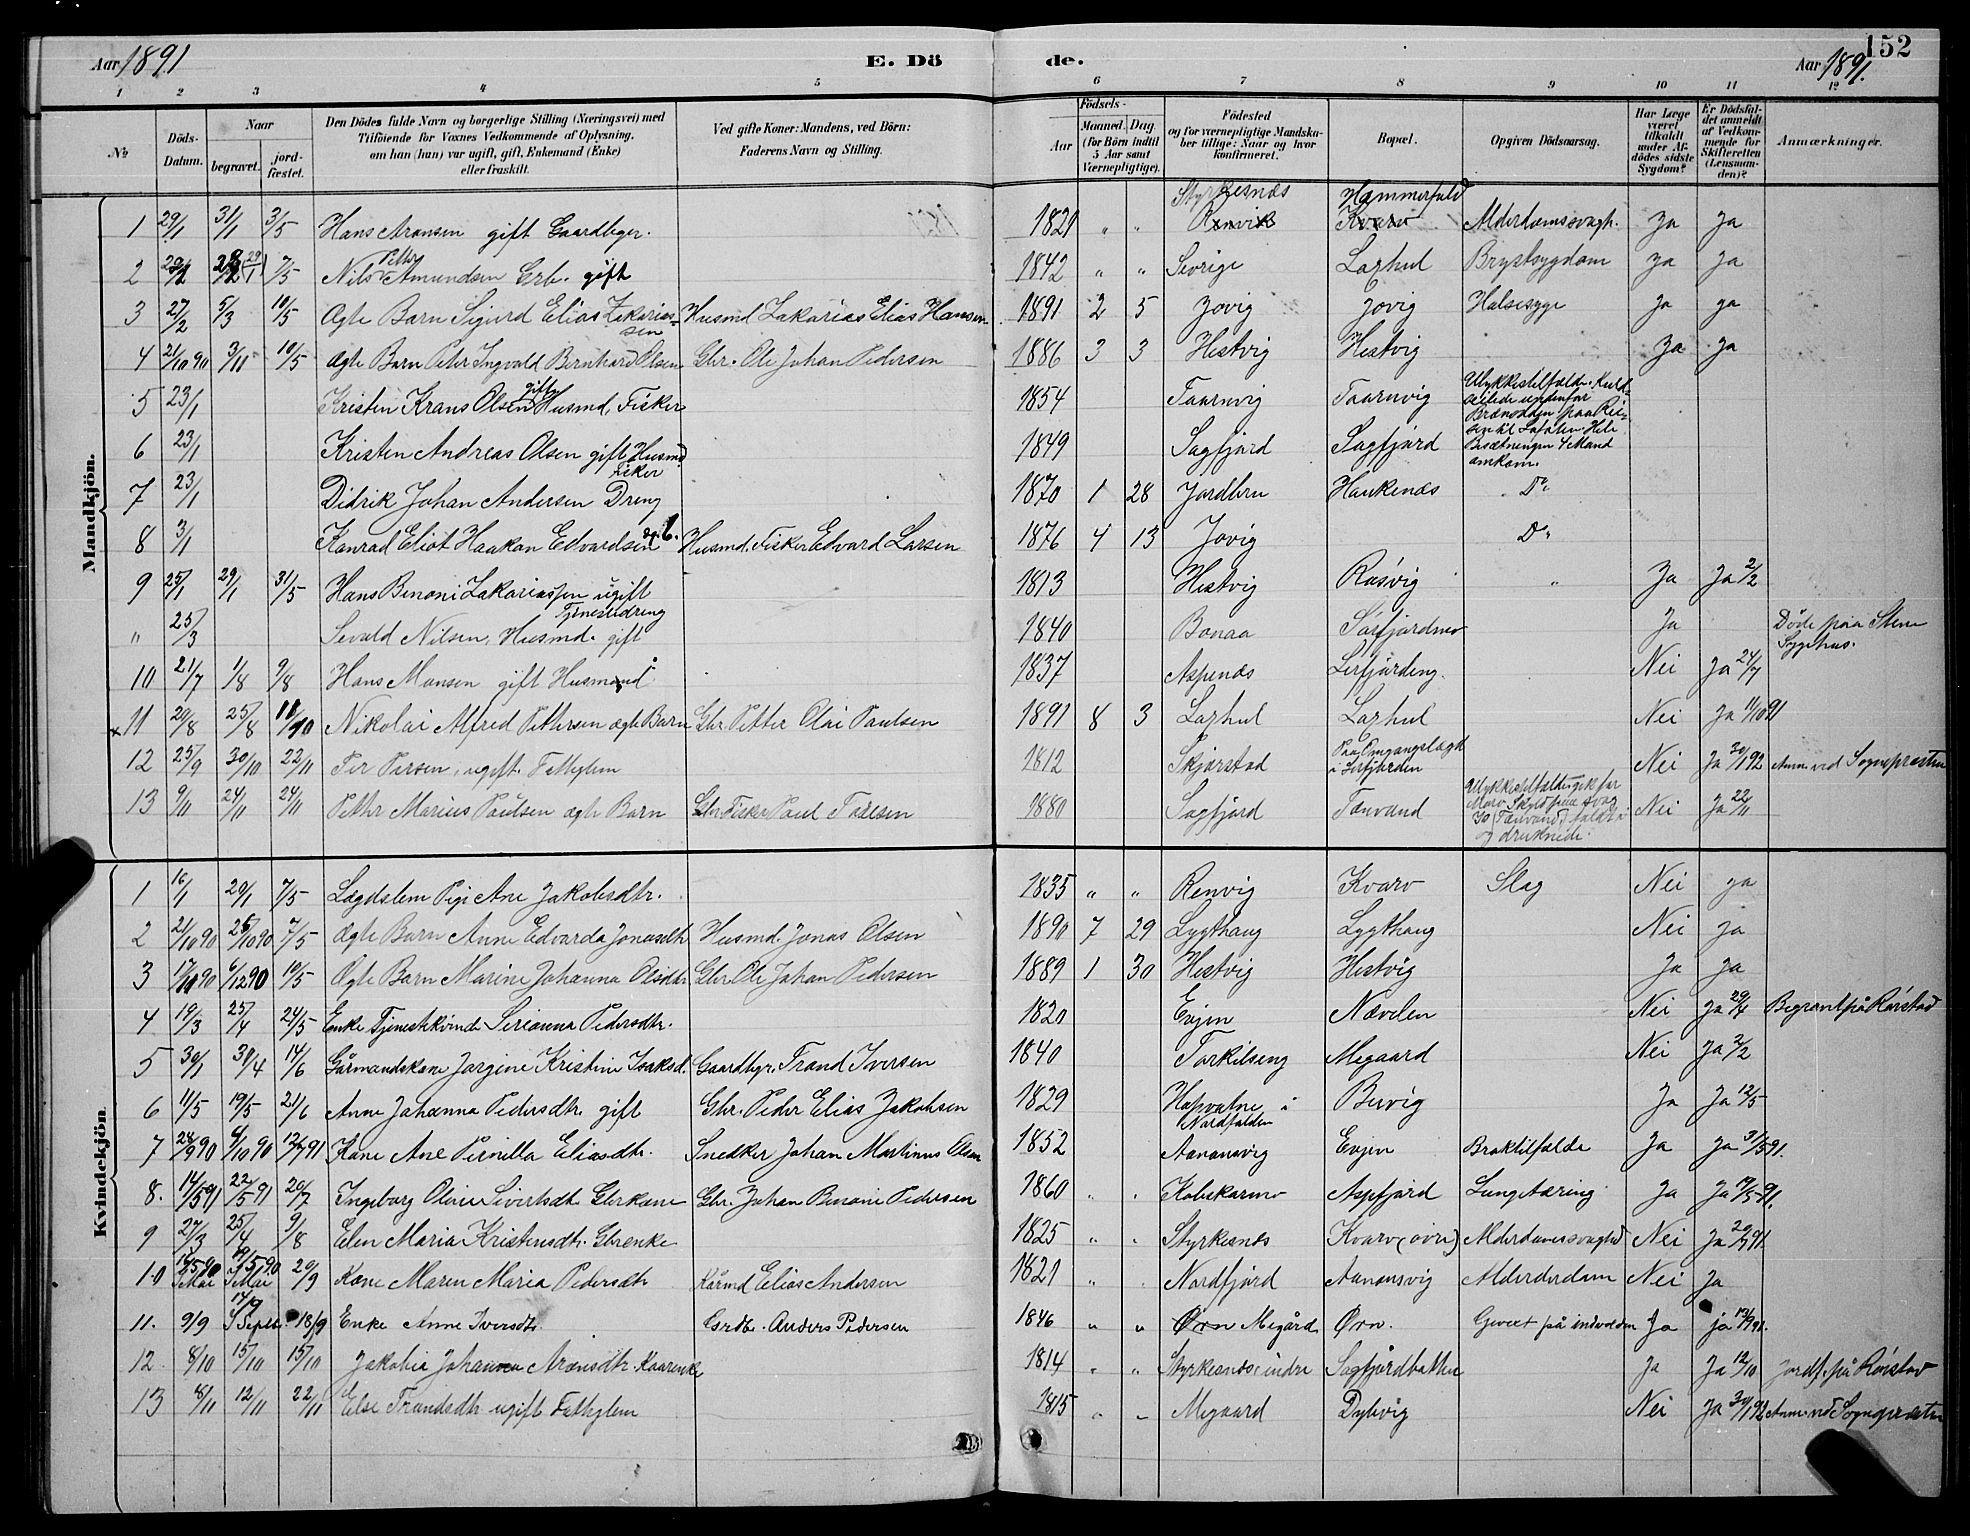 Aar 1891
E. Dö
de.
Aar 1891.
152
1 2 3 4 5 6 7 8 9 10 11 12
№
Döds-Datum.
Naar
begravet.
jord-fæstet.
Den Dödes fulde Navn og borgerlige Stilling (Næringsvei) med
Tilföiende for Voxnes Vedkommende af Oplysning,
om han (hun) var ugift, gift, Enkemand (Enke)
eller fraskilt.
Ved gifte Koner: Mandens, ved Börn:
Faderens Navn og Stilling.
Födsels-
Aar
Maaned. Dag
(for Börn indtil
5 Aar samt
Værnepligtige).
Födested
og for værnepligtige Mandska-
ber tillige: Naar og hvor
konfirmeret.
Bopæl.
Opgiven Dödsaarsag.
Har Læge
været
tilkaldt
under Af-
dödes sidste
Sygdom?
Er Dödsfal-
det anmeldt
af Vedkom-
mende for
Skifteretten
(Lensman-
den)?
Anmærkninger.
Mandkjön.
Styrkesnæs Hammerfald
1 29/1 31/1 3/5 Hans Aronsen gift Gaardbgr. 1821 " " Renvik Kvarv Alderdomssvagh. Ja Ja
2 7/5 Nils Petter Amundsen Grb. gift 1842 " " Sverige Laxhul Brystsygdom Ja Ja
3 27/2 5/3 10/5 Ægte Barn Sigurd Elias Zakarias-sen Husmd Zakarias Elias Hansen 1891 2 5 Jovig Jovig Halsesyge Ja Ja
4 21/10 90 3/11 10/5 Ægte Barn Peter Ingvald Bernhard Olsen Gbr. Ole Johan Pedersen 1886 3 3 Hestvig Hestvig Ja Ja
5 23/1 Kristen Krans Olsen gift Husmd, Fisker 1854 Taarnvig Taarnvig Ulykkestilfælde. Kuld-
seilede udenfor
6 23/1 Kristen Andreas Olsen gift Husmd Fisker 1849 Sagfjord Sagfjord Besætningen 4 Mand
omkom.
7 23/1 Didrik Johan Andersen Dreng 1870 1 28 Jordbru Haukenæs Do
8 3/1 Konrad Eliot Haakon Edvardsen Husmd. Fisker Edvard Larsen 1876 4 13 Jovig Do
9 25/1 29/1 31/5 Hans Benoni Zakariassen ugift Tjenestedreng 1813 Hestvig Røsvig " Ja Ja 2/2
" 25/3 Sevald Nilsen, Husmd. gift 1840 Bonaa Sørfjordmo Ja Døde paa Stene
Sygehus.
10 21/7 1/8 9/8 Hans Monsen gift Husmand 1837 Aspenæs Lerfjorden Nei Ja 24/7
x 11 20/8 25/8 11/10 Nikolai Alfred Pettersen ægte Barn Gbr. Petter Olai Paulsen 1891 8 3 Laxhul Laxhul Nei Ja 11/10 91
12 25/9 30/10 22/11 Per Persen, ugift, Fattiglem 1812 Skjerstad Paa Omgangslægd
i Lerfjorden Nei Ja 30/1 92 Anm. ved Sognepresten
13 9/11 24/11 24/11 Peter Marius Paulsen ægte Barn Gbr. Fisker Paul Toresen 1880 Sagfjord Tønvand Ulykkestilfælde gik før
og druknede. Nei Ja 22/11
Kvindekjön
1 16/1 29/1 7/5 Lægdslem Pige Ane Jakobsdtr. 1835 " " Renvig Kvarv Slag Nei Ja
2 21/10 90 26/10 90 7/5 Ægte Barn Anne Edvarda Jonasdtr Husmd. Jonas Olsen 1890 7 29 Lygthaug Lygthaug Nei Ja
3 17/10 90 6/12 90 10/5 Ægte Barn Marine Johanna Olsdtr Gbr. Ole Johan Pedersen 1889 1 30 Hestvig Hestvig Ja Ja
4 19/3 25/4 24/5 Enke Tjenestekvinde Serianna Pedersdtr. 1820 Evjen Nævelen Nei Ja 29/4 Begravet på Rørstad
5 30/1 30/4 14/6 Gårmandskone Jørgine Kristine Isaksd. Gaardbgr. Trond Iversen 1840 Torkilseng Megaard Nei Ja 2/2
6 11/5 19/5 21/6 Anne Johanna Pedersdtr. gift Gbr. Peder Elias Jakobsen 1829 Hopvatne i
Nordfolden Bervig Ja Ja 12/5
7 28/9 90 6/10 90 12/7 91 Kone Ane Pernilla Eliasdtr. Snedker Johan Martinus Olsen 1852 Aanonsvig Evjen Broktilfælde Ja Ja 31/5 91.
8. 14/5 91 22/5 91 20/7 Ingeborg Olivie Sivertsdtr. Gbrkone Gbr. Johan Benoni Pedersen 1860 " " Kobskarmo Aspfjord Lungetæring Ja Ja 17/5 91.
9 27/3 25/4 9/8 Elen Maria Kristensdtr. Gbrenke 1825 " " Styrkesnæs Kvarv (øvre) Alderdomssvaghed Nei Ja 29/7 91
10 14/5 90 Mai 19/5 90 Mai 20/9 Kone Maren Maria Pedersdtr Kårmd Elias Andersen 1821 " " Nordfjord Aanonsvig Alderdom Nei Ja
11. 9/9 14/9 Septb. 18/9 Enke Anne Iversdtr. Gårdbr. Anders Pedersen 1846 " " Ørn Megård Ørn. Gevext på indvolden Ja ja 12/9 91.
12 8/10 15/10 15/10 Jakobia Johanna Aronsdtr. Kaarenke 1814 " " Styrkesnæs, indre Sagfjordbotten Ja Ja 12/10 Jordf. på Rørstad
13 8/11 12/11 22/11 Else Trondsdtr ugift Fattiglem 1815 " " Megaard Dybvig Nei Ja 30/1 92 Anm. ved Sognepresten